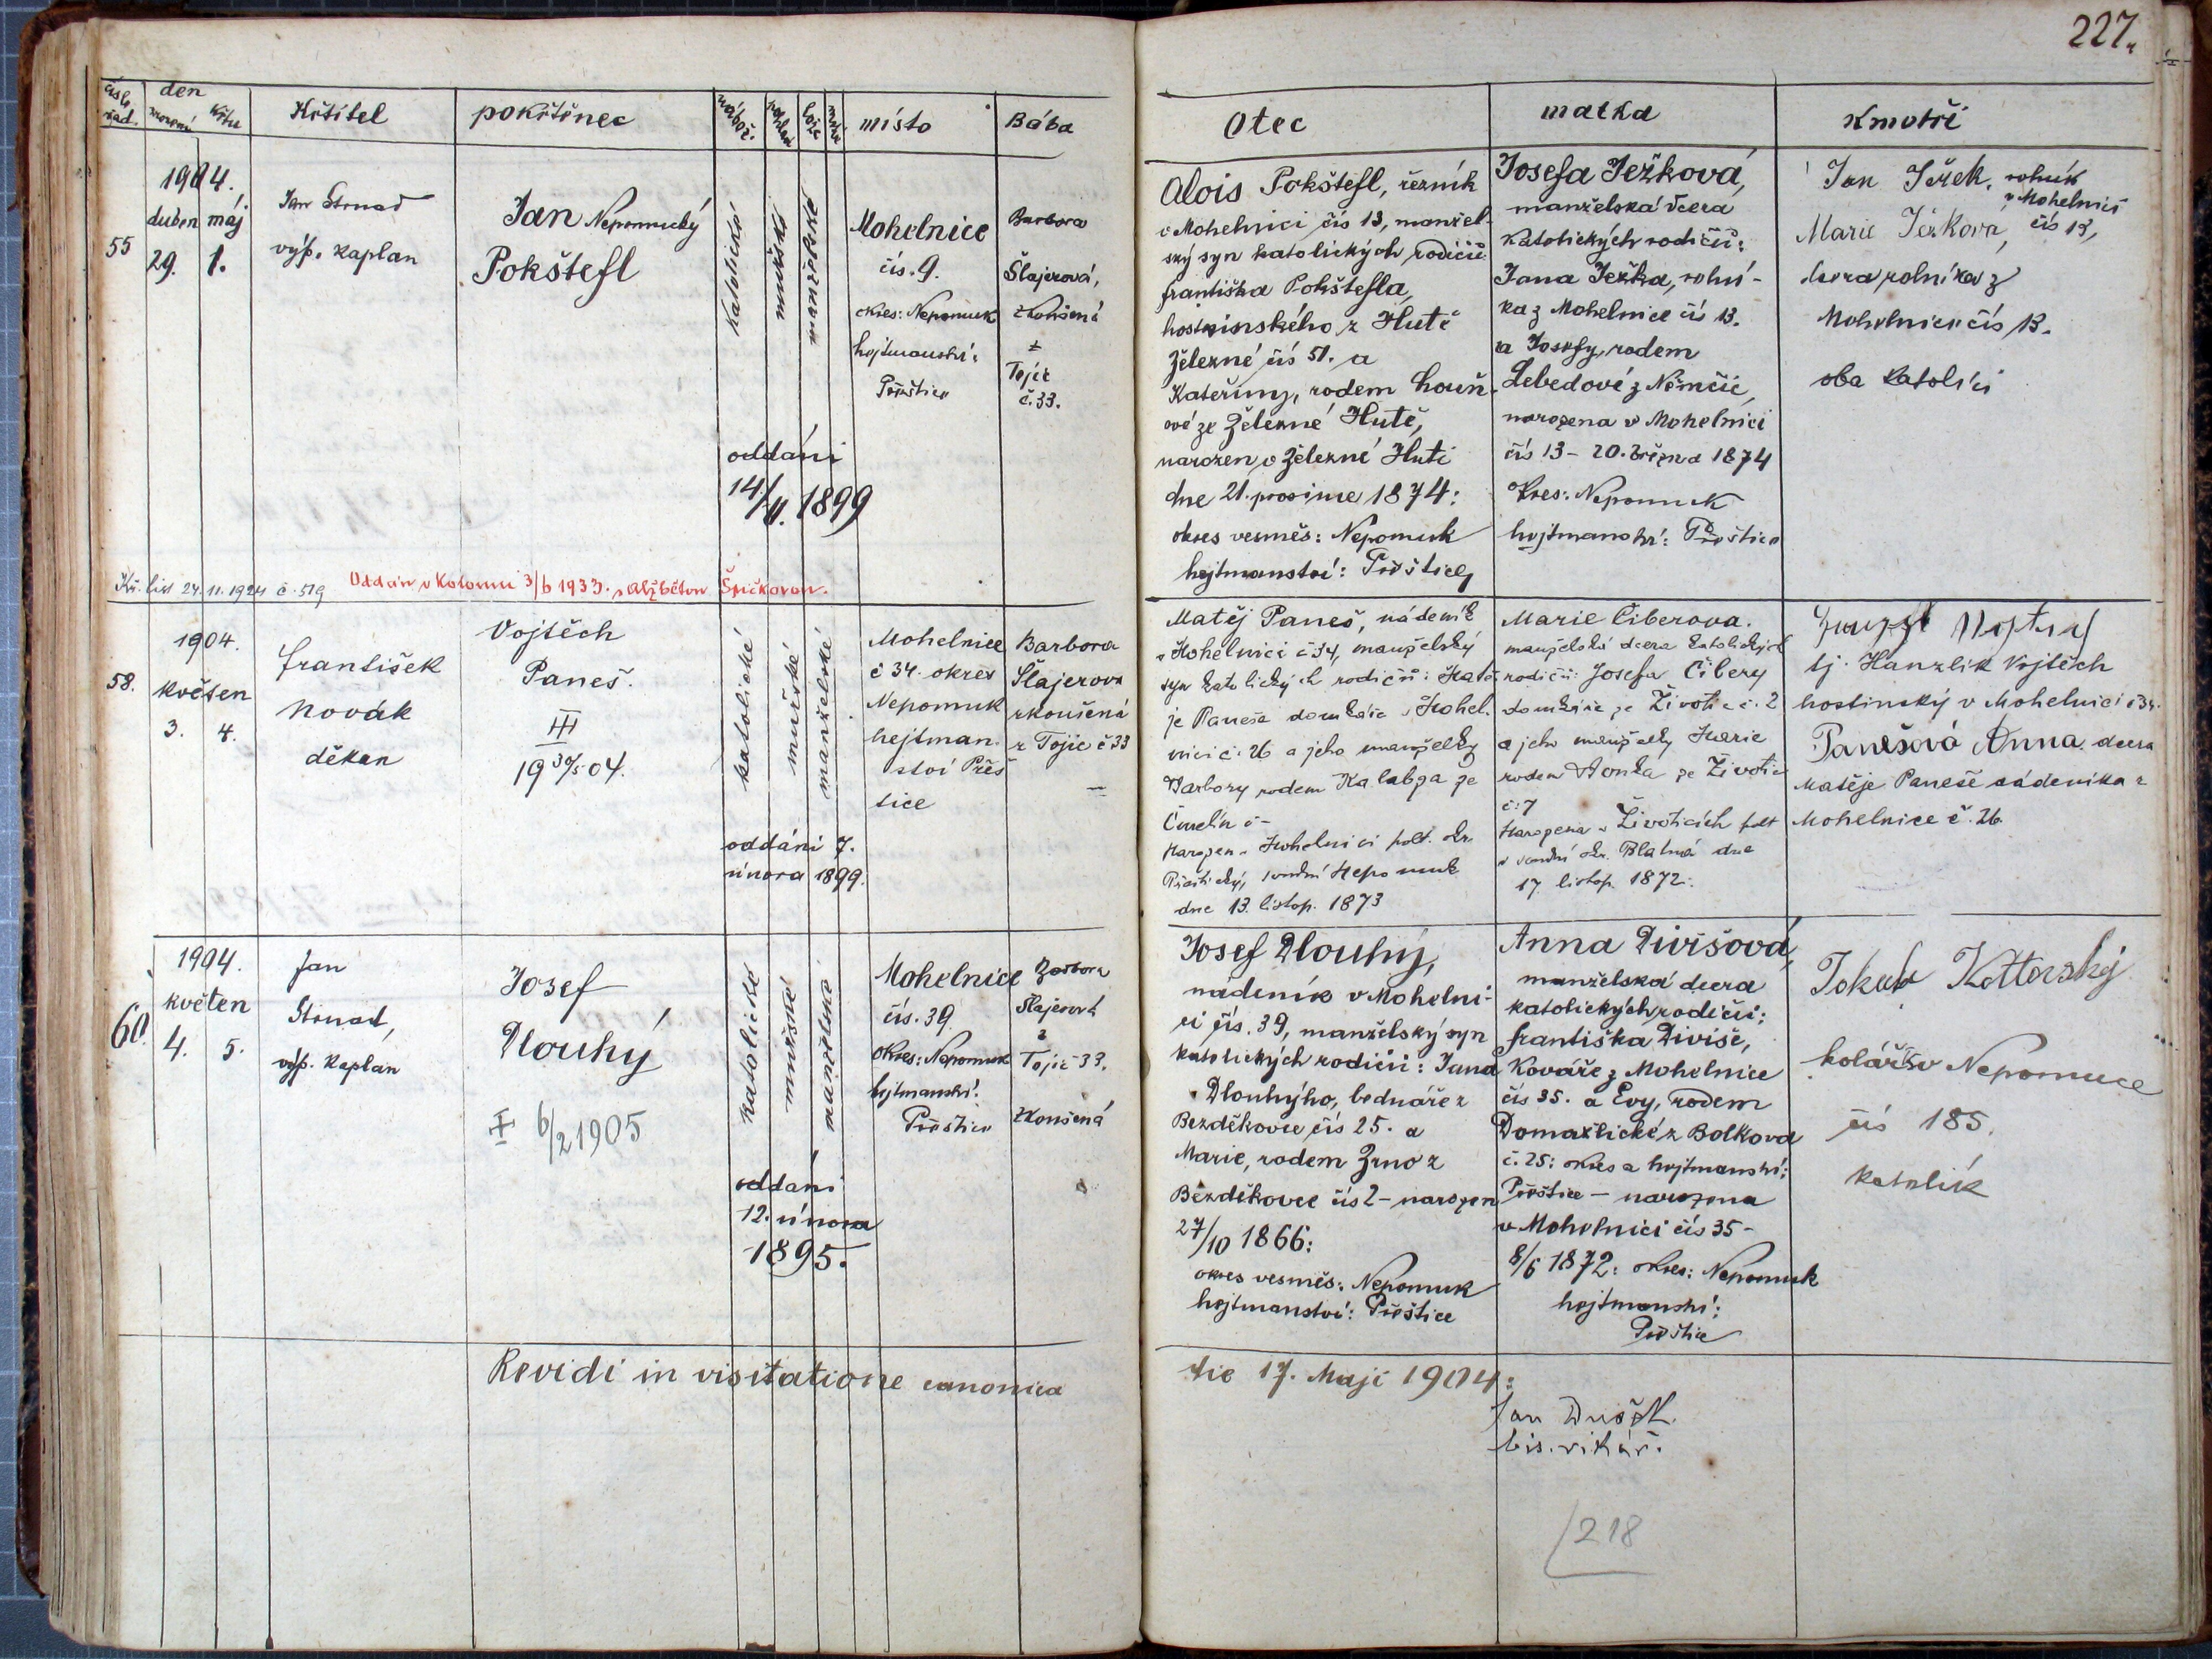 227.
čislo řad.
den
narození
křtu
Křtitel
pokřtěnec
nábož.
pohlaví
lože
místo
Bába
Otec
matka
Kmotři
55
1904.
duben máj
29. 1.
Jan Strnad
výp. kaplan
Jan Nepomucký
Pokštefl
katolické
mužské
manželské
Mohelnice
čís. 9.
okres: Nepomuk
hejtmanství:
Přeštice
Barbora
Šlajerová,
zkoušená
z
Tojic
č. 33.
oddáni
14/11. 1899
Alois Pokštefl, řezník
v Mohelnici čís 13, manžel-
ský syn katolických rodičů
Františka Pokštefla,
hostinského z Hutě
Železné čís 51. a
Kateřiny, rodem Louň-
ové ze Železné Hutě,
narozen v Železné Huti
dne 21. prosince 1874:
okres vesměs: Nepomuk
hejtmanství: Přeštice
Josefa Ježková,
manželská dcera
katolických rodičů:
Jana Ježka, rolní-
ka z Mohelnice čís 13.
a Josefy, rodem
Lebedové z Němčic,
narozena v Mohelnici
čís 13 - 20. března 1874
Okres: Nepomuk
hejtmanství: Přeštice
Jan Ježek, rolník
v Mohelnici
čís 13,
Marie Ježková,
dcera rolníka z
Mohelnice čís 13.
oba katolíci
Kř. list 24. 11. 1924 č. 519
Oddán v Kolomu 3/6 1933. s Alžbětou Špičkovou.
58.
1904.
květen
3. 4.
František
Novák
děkan
Vojtěch
Paneš.
19 30/5 04.
katolické
mužské
manželské
Mohelnice
č 34. okres
Nepomuk
hejtman-
ství Přeš
tice
Barbora
Šlajerova
zkoušená
z Tojic č 33
oddáni 7.
února 1899.
Matěj Paneš, nádeník
v Mohelnici č 34, manželský
syn katolických rodičů: Matě-
je Paneše domkáře v Mohel.
nici č. 26 a jeho manželky
Barbory rodem Kalabza ze
Čmelín č -
Narozen v Mohelnici polt. okr.
Přeštický, soudní Nepomuk
dne 13. listop. 1873
Marie Ciberova.
manželská dcera katolických
rodičů: Josefa Cibery
domkáře ze Životic č. 2
a jeho manželky Marie
rodem Vonka ze Životic
č: 7
Narozena v Životicích polt
v soudní okr. Blatná dne
17. listop. 1872.
tj. Hanzlík Vojtěch
hostinský v Mohelnici č 34.
Panešová Anna dcera
Matěje Paneše nádeníka z
Mohelnice č. 26
60.
1904.
květen
4. 5.
Jan
Strnad,
výp. kaplan
Josef
Dlouhý
6/2 1905
katolické
mužské
manželské
Mohelnice
čís. 39.
Okres: Nepomuk
hejtmanství:
Přeštice
Barbora
Šlajerová
z
Tojic 33.
zkoušená
oddáni
12. února
1895.
Josef Dlouhý,
nádeník v Mohelni-
ci čís. 39, manželský syn
katolických rodičů: Jana
Dlouhýho, bednáře z
Bezděkovce čís 25. a
Marie, rodem Zrno z
Bezděkovce čís 2 - narozen
27/10 1866:
okres vesměs: Nepomuk
hejtmanství: Přeštice
Anna Divišová,
manželská dcera
katolických rodičů:
Františka Diviše,
Kováře z Mohelnice
čís 35. a Evy, rodem
Domažlické z Bolkova
č. 25: okres a hejtmanství:
Přeštice - narozena
v Mohelnici čís 35 -
8/6 1872: okres: Nepomuk
hejtmanství:
Přeštice
Jakub Kottorský
kolář v Nepomuce
čís 185.
katolík
Revidi in visitatione canonica
die 17. Maji 1904:
Jan Dušek
bis. vikář.
218